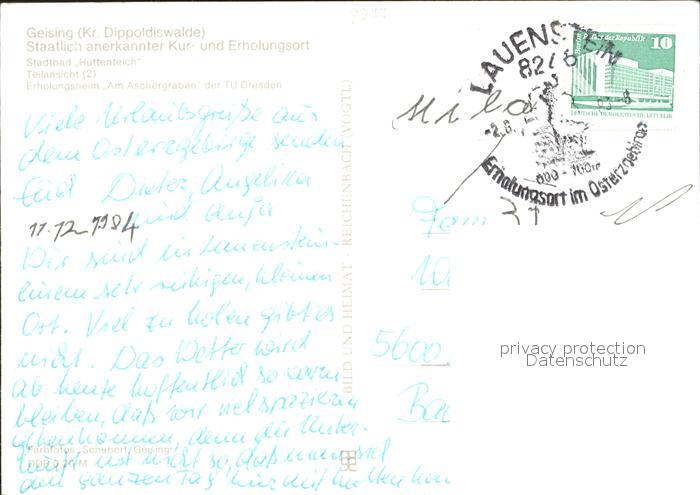 Geising (Kr. Dippoldiswalde)
Staatlich anerkannter Kur- und Erholungsort
Stadtbad „Hüttenteich"
Teilansicht (2)
Erholungsheim „Am Aschergraben" der TU Dresden
Viele Urlaubsgrüße aus
dem Osterzgebirge senden
Euch Dieter, Angelika
und Anja
11.12.1984
Wir sind in Lauenstein,
einem sehr ruhigen, kleinen
Ort. Viel zu holen gibt es
nicht. Das Wetter wird
ab heute hoffentlich so warm
bleiben, daß wir viel spazieren
gehen können, denn die Unter-
kunft ist nicht so, daß man sich
den ganzen Tag
Farbfotos: Schubert, Geising
BILD UND HEIMAT · REICHENBACH (VOGTL)
LAUENSTEIN
8276
-2.8.
Erholungsort im Osterzgebirge
Berlin, Palast der Republik
10
DEUTSCHE DEMOKRATISCHE REPUBLIK
Fam
10
5600
privacy protection
Datenschutz